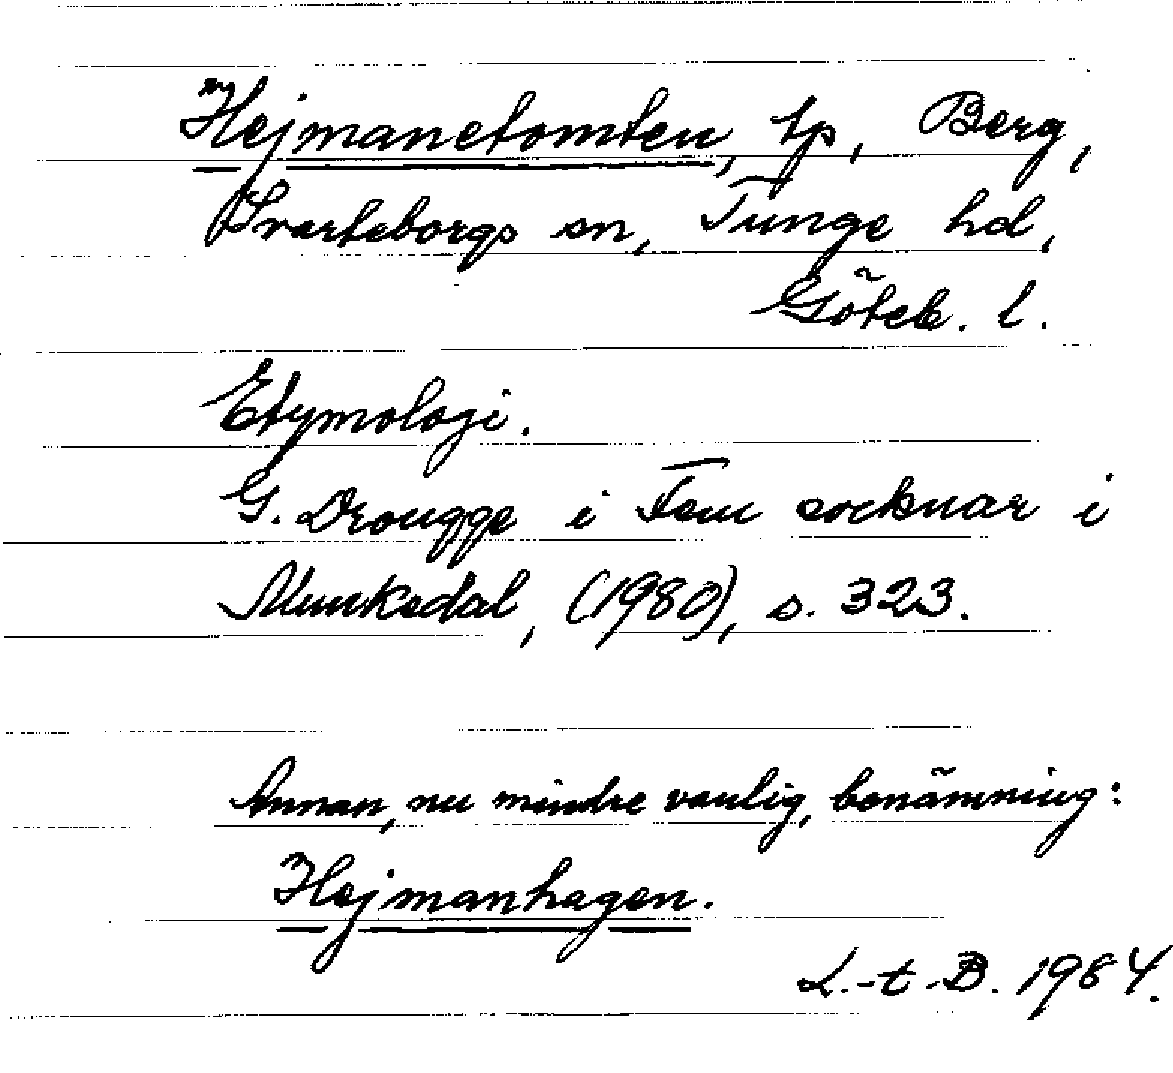 Hejmanetomten, tp, Berg,
Svarteborgs sn, Tunge hd,
Göteb. l.
Etymologi.
G. Drougge i Fem socknar i
Munkedal, (1980), s. 323.
Annan, nu mindre vanlig, benämning:
Hejmanhagen.
L.-t -B. 1984.